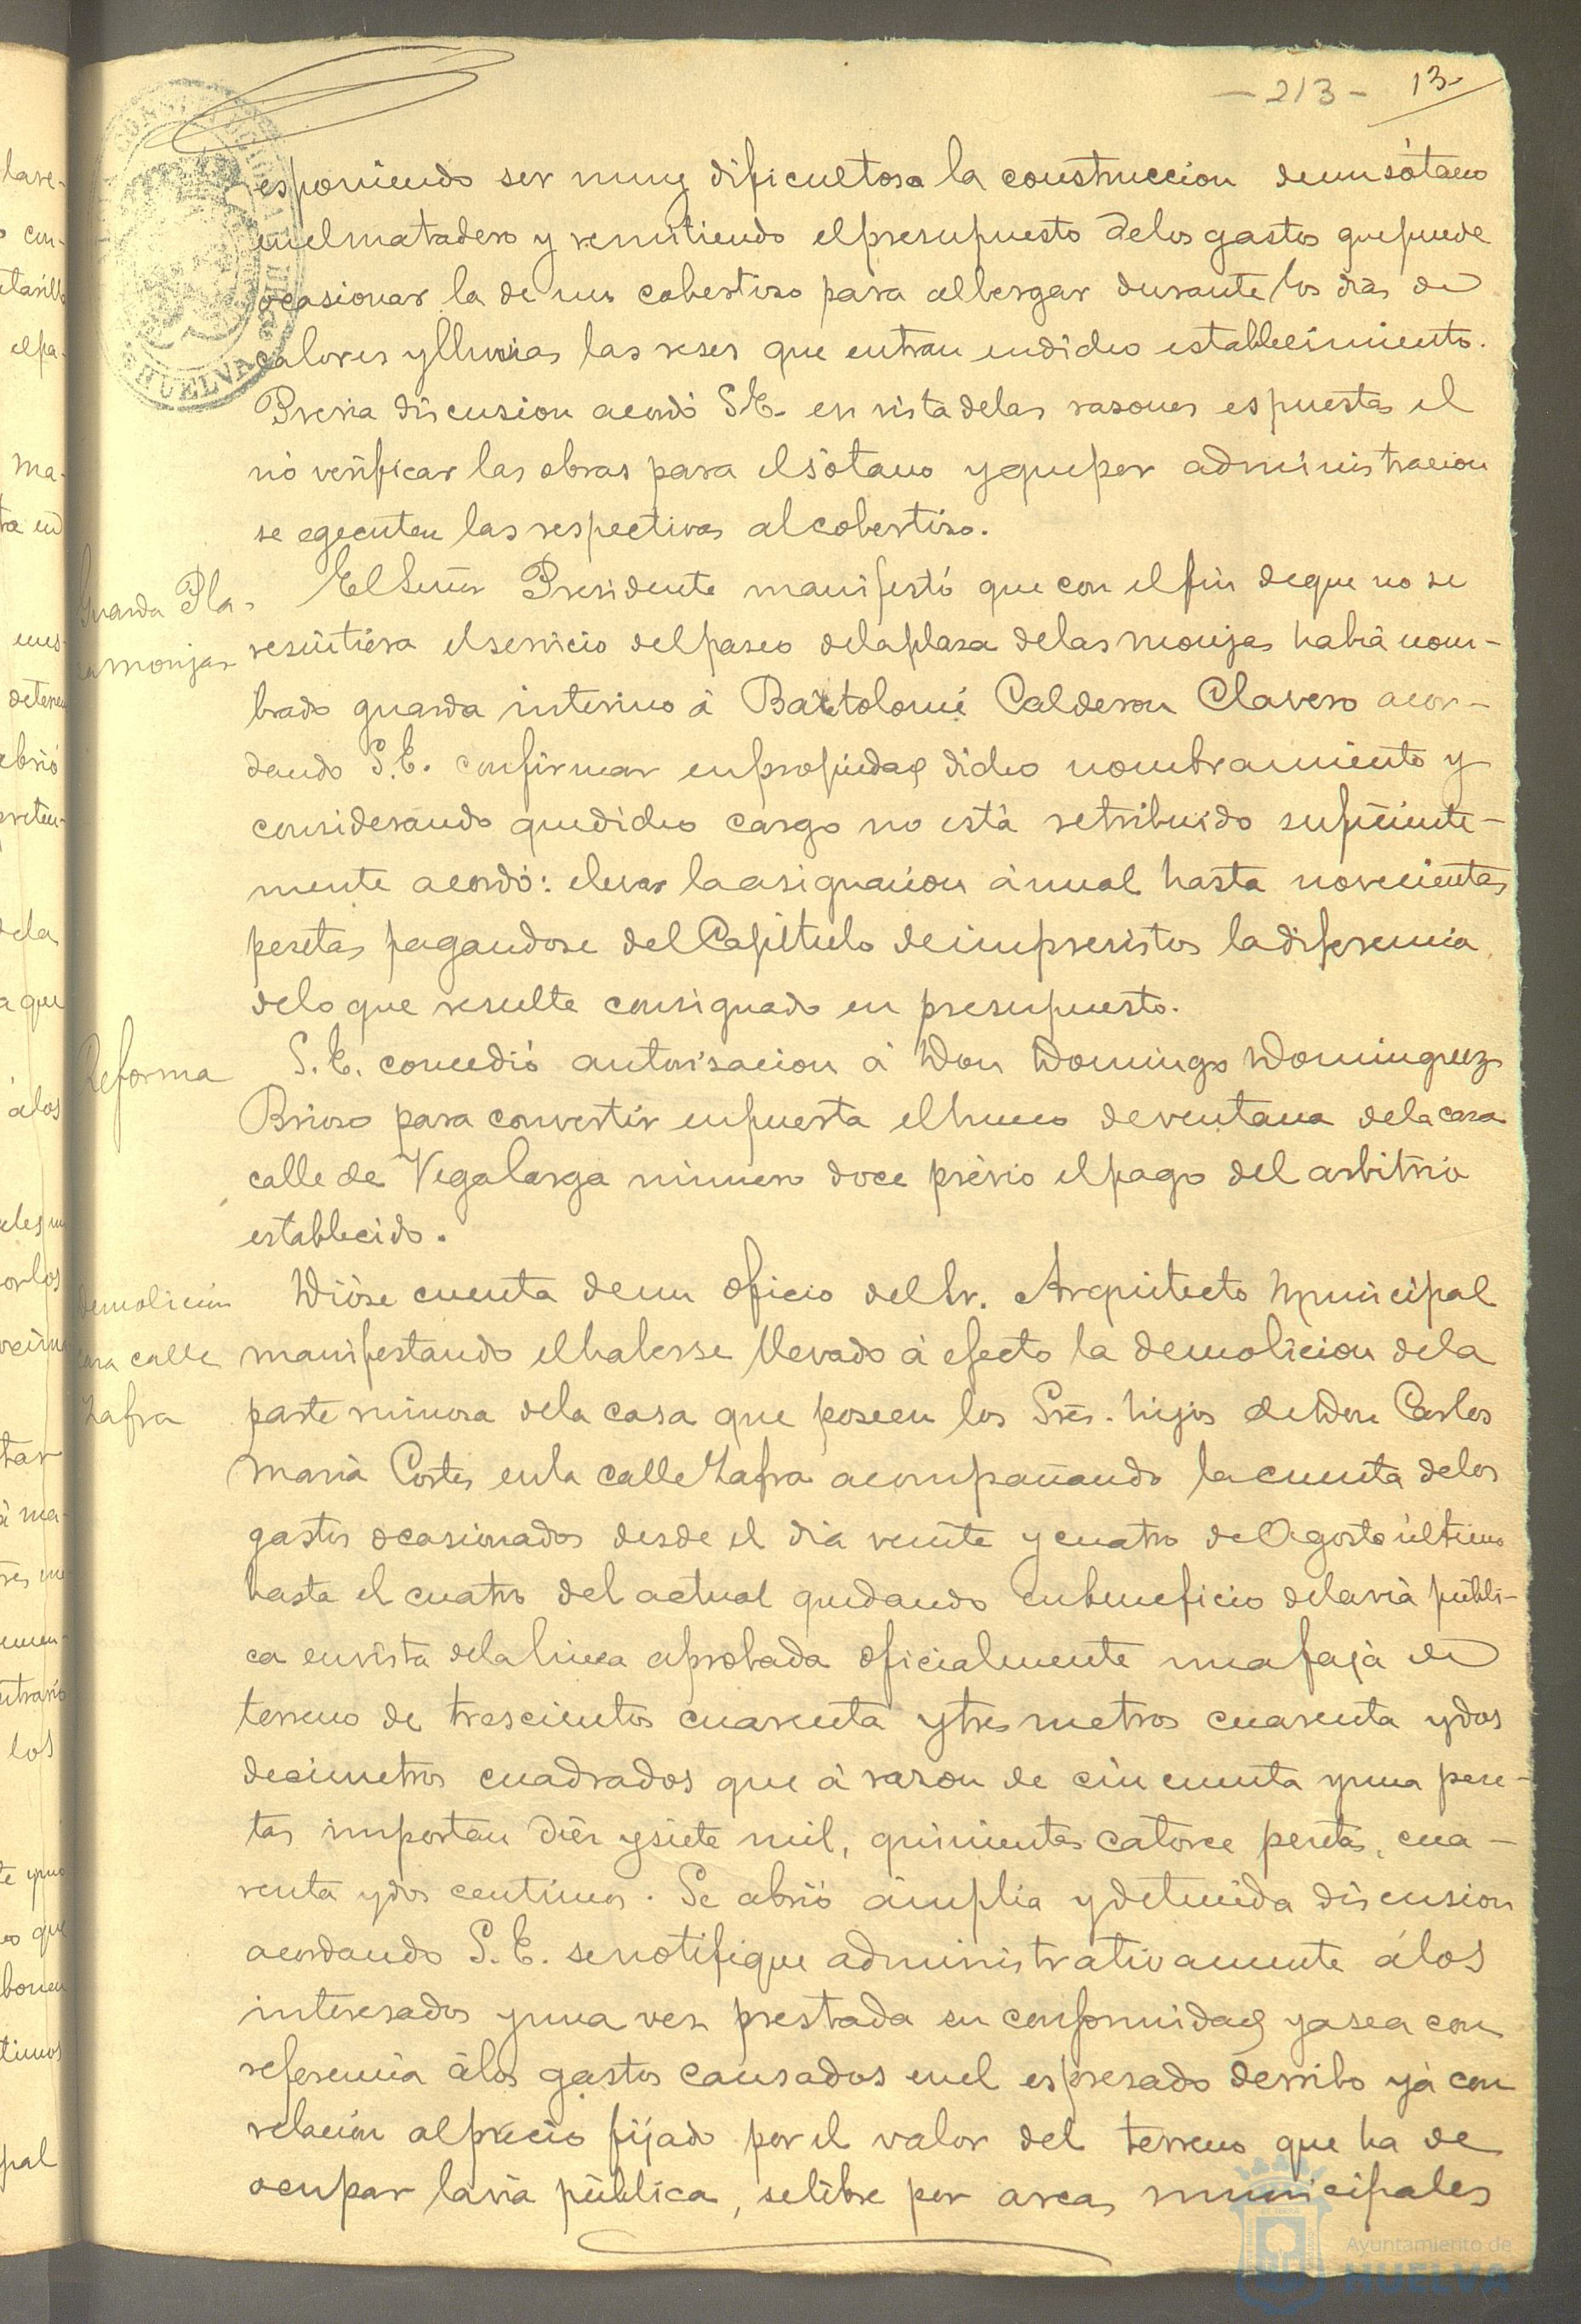 -213- 13
esponiendo ser muy dificultosa la construccion de un sótano
en el matadero y remitiendo el presupuesto de los gastos que puede
ocasionar la de un cobertizo para albergar durante los dias de
calores y lluvias las reses que entran en dicho establecimiento.
Previa discusion acordó S.E. en vista de las razones espuestas el
nó verificar las obras para el sótano y que por administracion
se egecuten las respectivas al cobertizo.
Guarda Pla-
za monjas
El Señor Presidente manifestó que con el fin de que no se
resintiera el servicio del paseo de la plaza de las monjas había nom-
brado guarda interino á Bartolomé Calderon Clavero acor-
dando S.E. confirmar en propiedad dicho nombramiento y
considerando que dicho cargo no está retribuido suficiente-
mente acordó: elevar la asignacion ánual hasta novecientas
pesetas pagandose del Capítulo de imprevistos la diferencia
de lo que resulte consignado en presupuesto.
Reforma
S.E. concedió autorisacion á Don Domingo Dominguez
Brioso para convertir en puerta el hueco de ventana de la casa
calle de Vegalarga número doce prévio el pago del arbitrio
establecido.
Demolicion
casa calle
Zafra
Dióse cuenta de un oficio del Sr. Arquitecto Municipal
manifestando el haberse llevado á efecto la demolicion de la
parte ruinosa de la casa que poseen los Sres. hijos de Don Carlos
Maria Cortes en la calle Zafra acompañando la cuenta de los
gastos ocasionados desde el dia veinte y cuatro de Agosto último
hasta el cuatro del actual quedando en beneficio de la via públi-
ca en vista de la linea aprobada oficialmente una faja de
terreno de trescientos cuarenta y tres metros cuarenta y dos
decimetros cuadrados que á razon de cincuenta y una pese-
tas importan diez y siete mil, quinientas catorce pesetas, cua-
renta y dos centimos. Se abrió ámplia y detenida discusion
acordando S.E. se notifique administrativamente á los
interesados y una vez prestada su conformidad ya sea con
referencia á los gastos causados en el espresado derribo yá con
relacion al precio fijado por el valor del terreno que ha de
ocupar la via pública, se libre por arcas municipales
HUELVA
Ayuntamiento de
HUELVA